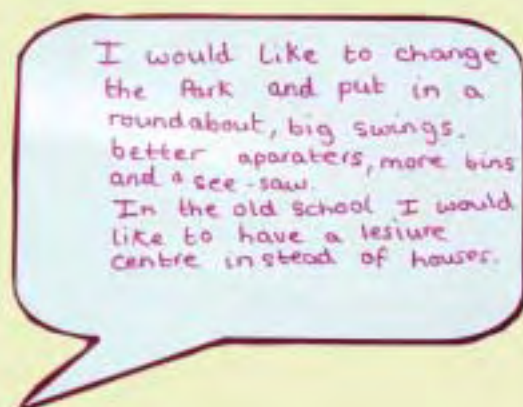 I would like to change
the Park and put in a
roundabout, big swings.
better aparaters, more bins
and a see-saw.
In the old school I would
like to have a lesiure
centre instead of houses.